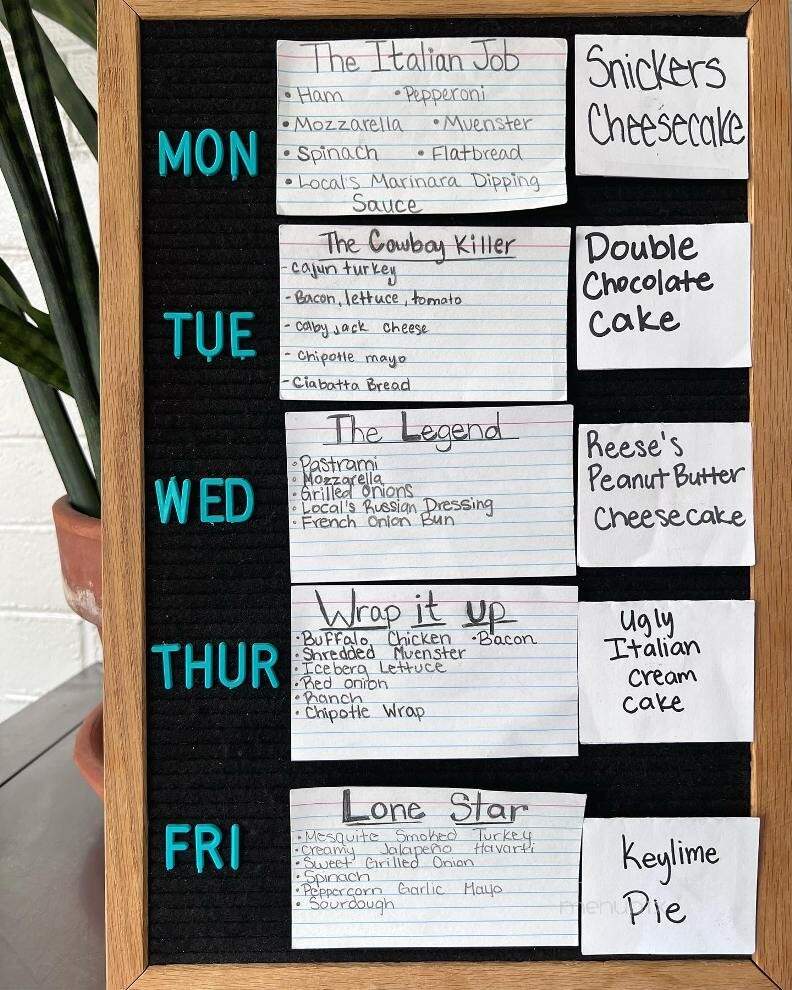 MON
The Italian Job
• Ham • Pepperoni
• Mozzarella • Muenster
• Spinach • Flatbread
• Local's Marinara Dipping
Sauce
Snickers
Cheesecake
TUE
The Cowboy Killer
- Cajun turkey
- Bacon, lettuce, tomato
- Colby jack cheese
- Chipotle mayo
- Ciabatta Bread
Double
Chocolate
Cake
WED
The Legend
• Pastrami
• Mozzarella
• Grilled Onions
• Local's Russian Dressing
• French Onion Bun
Reese's
Peanut Butter
Cheesecake
THUR
Wrap it up
• Buffalo Chicken • Bacon
• Shredded Muenster
• Iceberg Lettuce
• Red onion
• Ranch
• Chipotle Wrap
Ugly
Italian
Cream
Cake
FRI
Lone Star
• Mesquite Smoked Turkey
• Creamy Jalapeño Havarti
• Sweet Grilled Onion
• Spinach
• Peppercorn Garlic Mayo
• Sourdough
Keylime
Pie